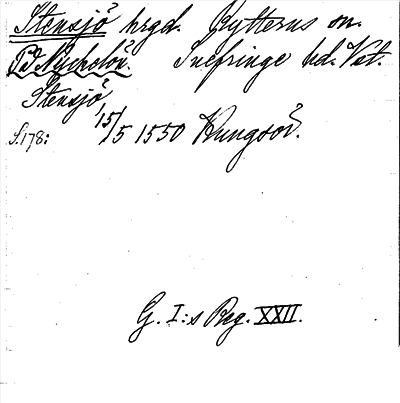 Stensjö hrgd. Rytterns sn.
PB. Nyckelön. Snefringe hd. Vst.
Stensjö
S. 178: 15/5 1550 Kungsör.
G. I:s Reg. XXII.